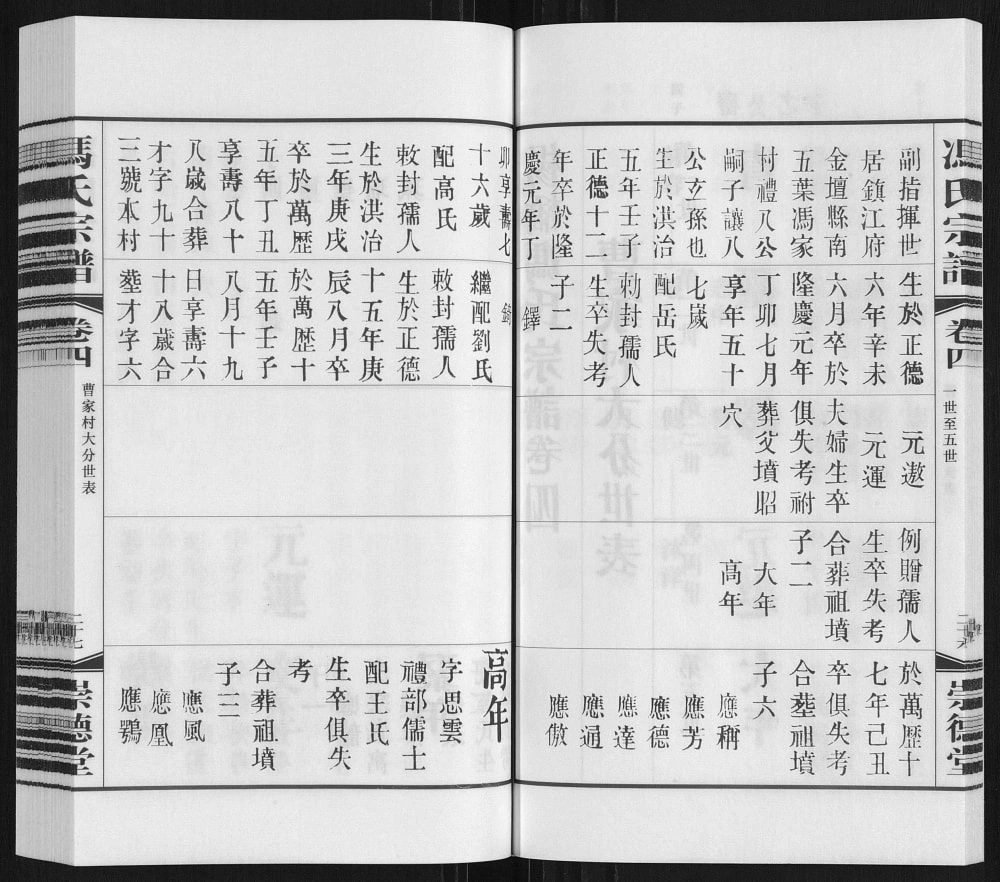 馮氏宗譜
卷四
一世至五世
二十六
崇德堂
副指揮世
居鎮江府
金壇縣南
五葉馮家
村禮八公
嗣子讓八
公玄孫也
生於洪治
五年壬子
正德十二
年卒於隆
慶元年丁
生於正德
六年辛未
六月卒於
隆慶元年
丁卯七月
享年五十
七嵗
配岳氏
勅封孺人
生卒失考
子二
鐸
元遨
元運
夫婦生卒
俱失考祔
葬父墳昭
穴
例贈孺人
生卒失考
合葬祖墳
子二
大年
高年
於萬歷十
七年己丑
卒俱失考
合塟祖墳
子六
應稱
應芳
應德
應達
應通
應傲
卯享壽七
十六歲
配高氏
敕封孺人
生於洪治
三年庚戌
卒於萬歷
五年丁丑
享壽八十
八歲合葬
才字九十
三號本村
錡
繼配劉氏
敕封孺人
生於正德
十五年庚
辰八月卒
於萬歷十
五年壬子
八月十九
日享壽六
十八歲合
塟才字六
高年
字思雲
禮部儒士
配王氏
生卒俱失
考
合葬祖墳
子三
應風
應凰
應鶚
馮氏宗譜
卷四
曹家村大分世表
二十七
崇德堂